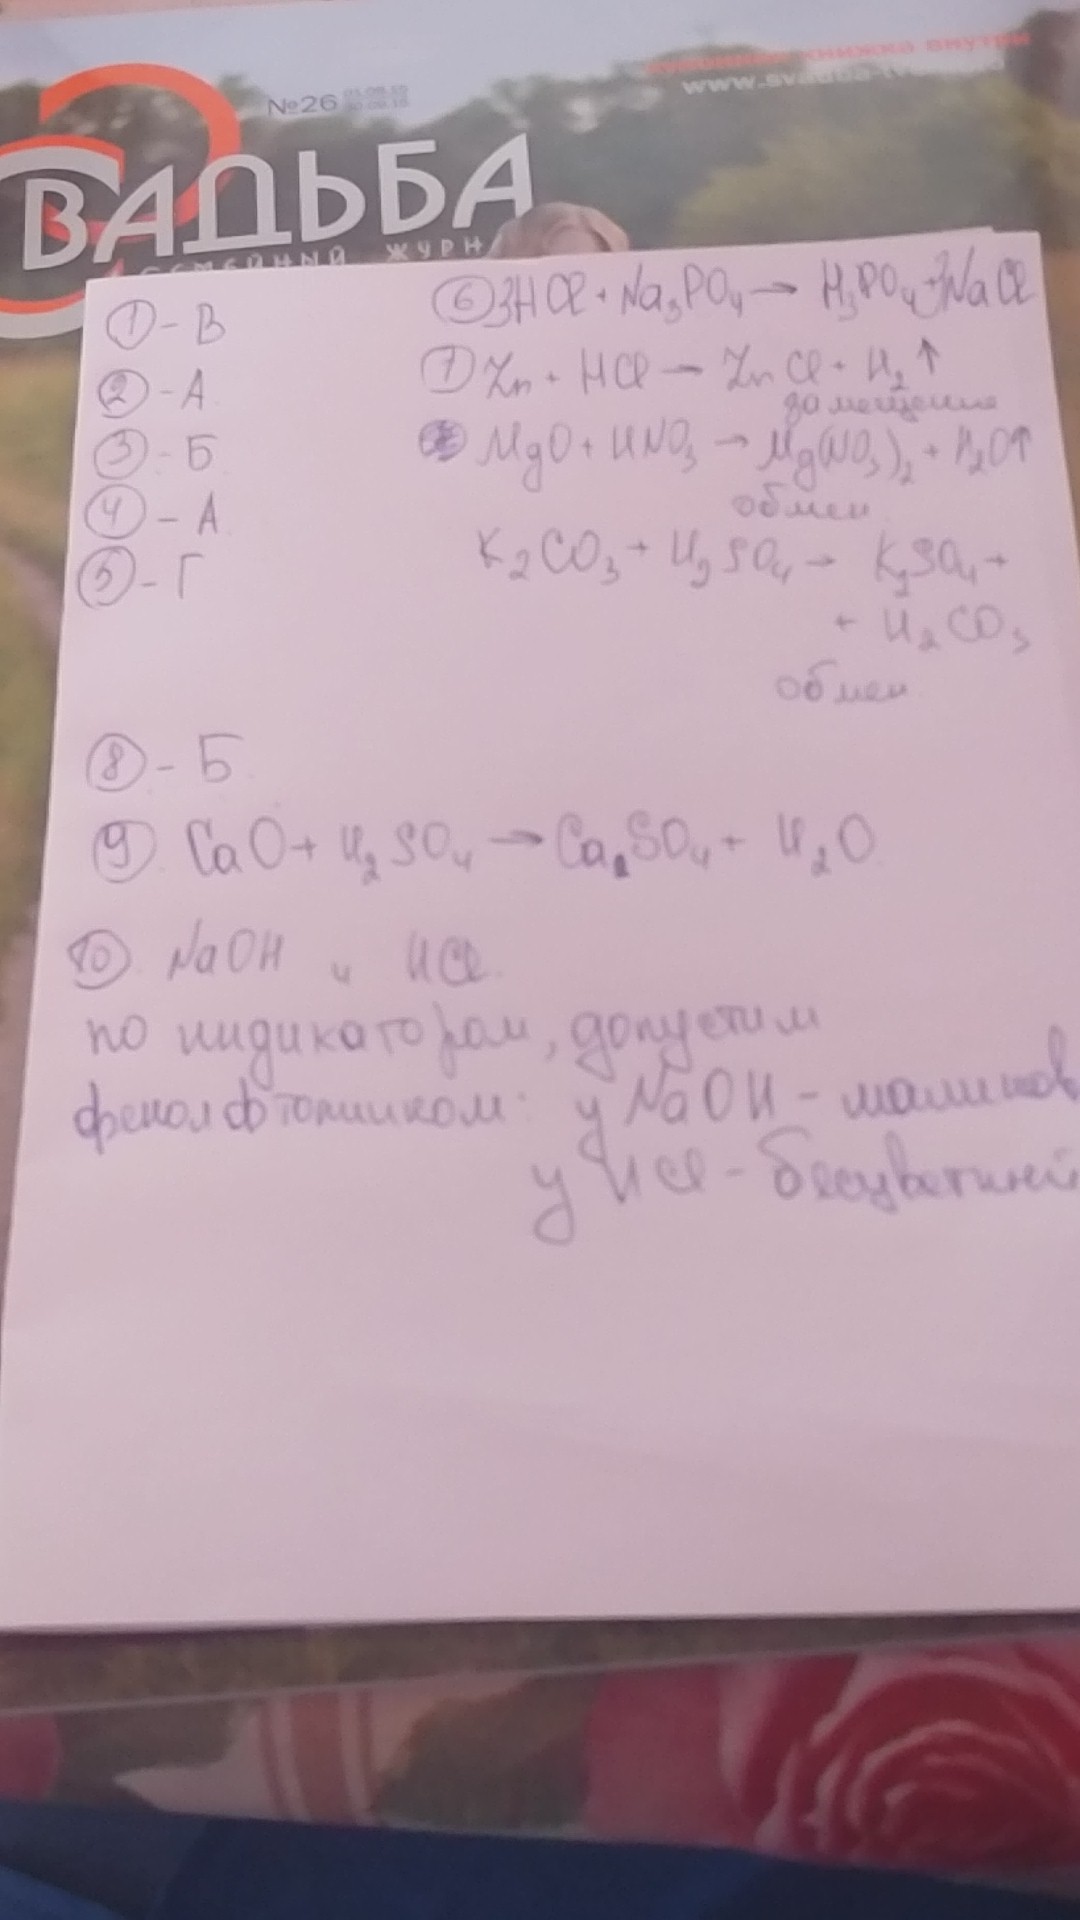 №26 01.09.10
СВАДЬБА
СЕМЕЙНЫЙ ЖУРН
книжка внутри
www.svadba-tv
① - В
② - А
③ - Б
④ - А
⑤ - Г
⑥ 3HCl + Na₃PO₄ → H₃PO₄ + 3NaCl
⑦ Zn + HCl → ZnCl + H₂ ↑
замещение
MgO + HNO₃ → Mg(NO₃)₂ + H₂O↑
обмен
K₂CO₃ + H₂SO₄ → K₂SO₄ +
+ H₂CO₃
обмен
⑧ - Б
⑨ CaO + H₂SO₄ → CaSO₄ + H₂O
⑩ NaOH и HCl
по индикаторам, допустим
фенолфтолиином: у NaOH - малинов
у HCl - бесцветный